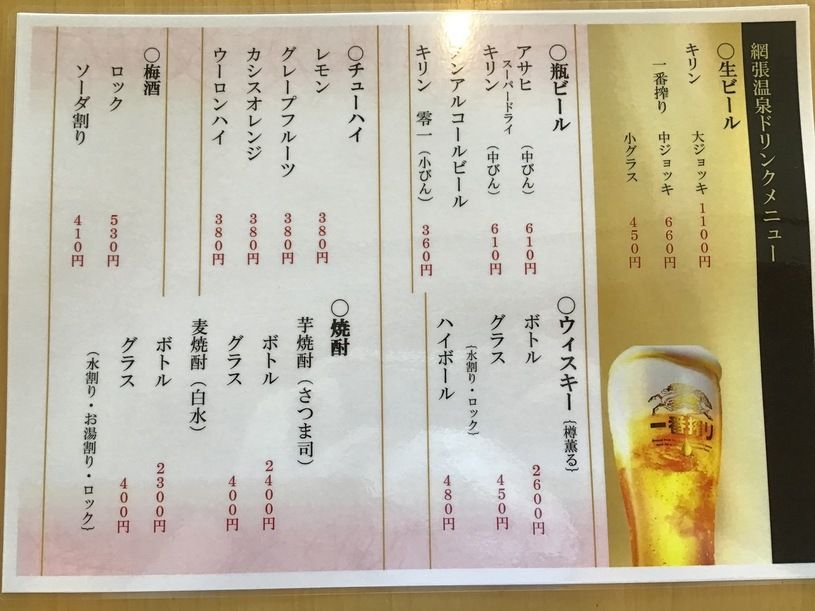 網張温泉ドリンクメニュー
〇生ビール
キリン 大ジョッキ 1100円
一番搾り 中ジョッキ 660円
小グラス 450円
〇瓶ビール
アサヒ スーパードライ (中びん) 610円
キリン (中びん) 610円
ノンアルコールビール
キリン 零一 (小びん) 360円
〇ウィスキー {樽薫る}
ボトル 2600円
グラス 450円
(水割り・ロック)
ハイボール 480円
〇チューハイ
レモン 380円
グレープフルーツ 380円
カシスオレンジ 380円
ウーロンハイ 380円
〇焼酎
芋焼酎(さつま司)
ボトル 2400円
グラス 400円
麦焼酎(白水)
ボトル 2300円
グラス 400円
(水割り・お湯割り・ロック)
〇梅酒
ロック 530円
ソーダ割り 410円
一番搾り